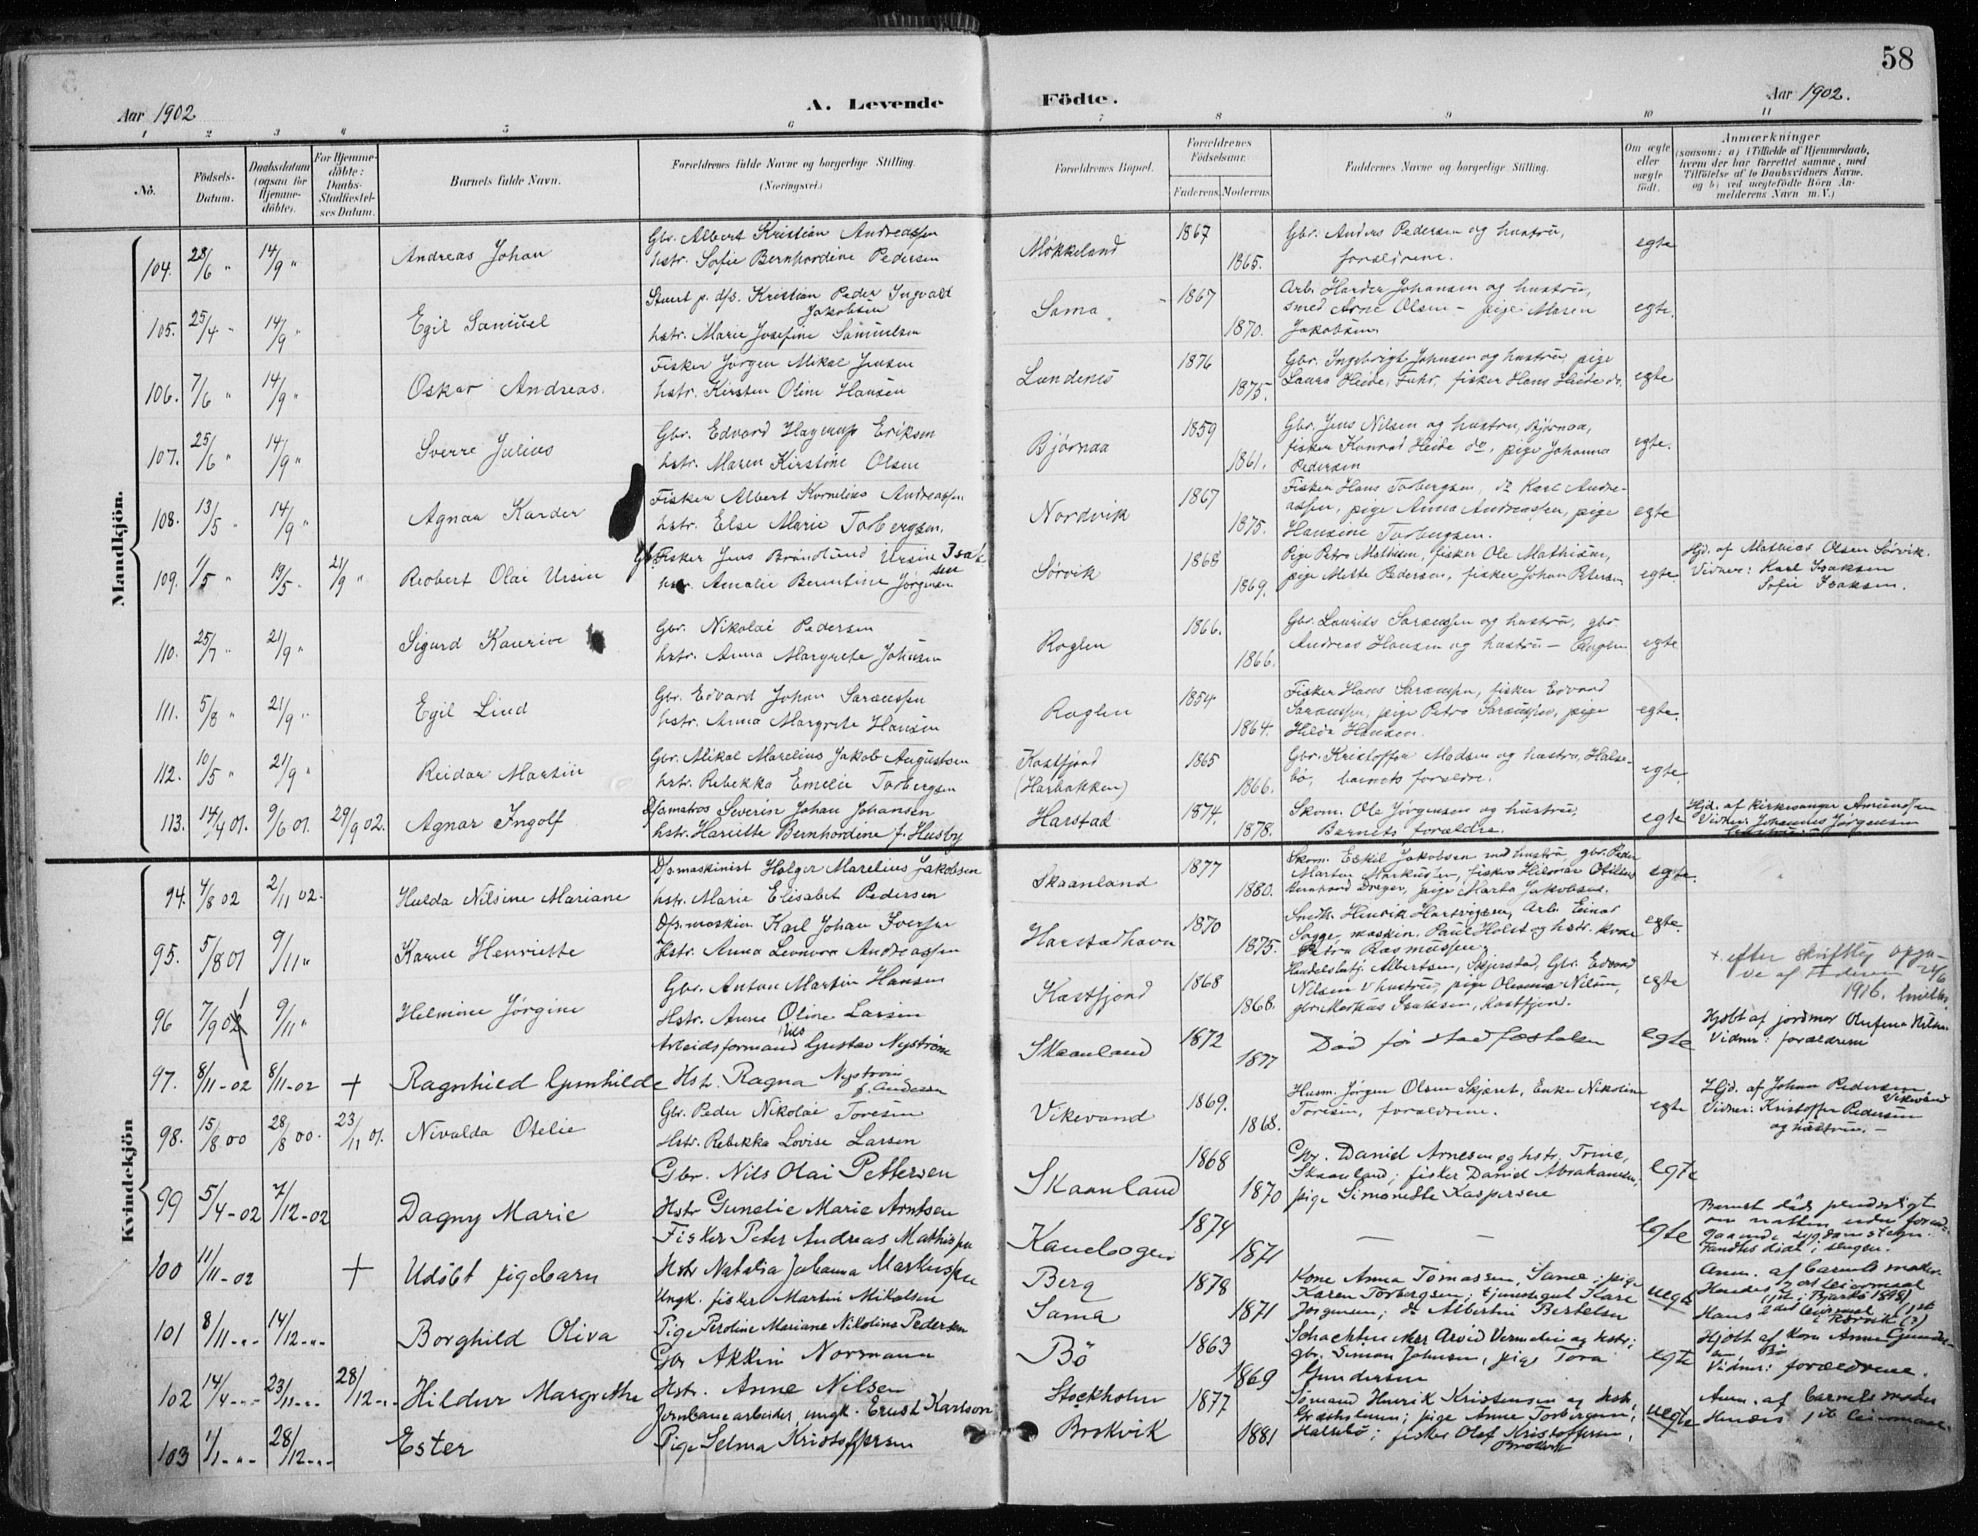 58
Aar 1902. A. Levende Födte. Aar 1902.
1 2 3 4 5 6 7 8 9 10 11
No.
Födsels-Datum.
Daabsdatum (ogsaa for Hjemme-döbte).
For Hjemme-döbte: Daabs-Stadfæstel-ses Datum.
Barnets fulde Navn.
Forældrenes fulde Navne og borgerlige Stilling. (Næringsvei.)
Forældrenes Bopæl.
Forældrenes Födselsaar. Faderens. Moderens.
Faddernes Navne og borgerlige Stilling.
Om ægte eller uægte födt.
Anmærkninger (saasom: a) i Tilfælde af Hjemmedaab, hvem der har forrettet samme, med Tilföielse af to Daabsvidners Navne, og b) ved uægtefödte Börn Anmelderens Navn m. V.)
Mandkjön.
104. 28/6 " 14/9 " Andreas Johan
Gbr. Albert Kristian Andreassen
hstr. Sofie Bernhardine Pedersen
Møkkeland 1867 1865.
Gbr. Anders Pedersen og hustru,
forældrene. egte
105. 25/4 " 14/9 " Egil Samuel
Stuert p. dfs. Kristian Peder Ingvald
Jakobsen
hstr. Marie Josefine Samuelsen
Sama 1867 1870.
Arb. Harder Johansen og hustru,
smed Arne Olsen - pige Maren
Jakobsen egte.
106. 7/6 " 14/9 " Oskar Andreas.
Fisker Jørgen Mikal Jensen
hstr. Kirsten Oline Hansen
Lundenes 1876 1875.
Gbr. Ingebrigt Johnsen og hustru, pige
Laura Heide, fisker Hans Heide do. egte
107. 25/6 " 14/9 " Sverre Julius
Gbr. Edvard Hagerup Eriksen
hstr. Maren Kirstine Olsen
Bjørnaa 1859 1861.
Gbr. Jens Nilsen og hustru, Bjørnaa,
fisker Konrad Heide do, pige Johanna
Pedersen egte.
108. 13/5 " 14/9 " Agnar Harder
Fisker Albert Kornelius Andreassen
hstr. Else Marie Torbergsen.
Nordvik 1867 1875.
Fisker Hans Torbergsen, do Karl Andre-
assen, pige Anna Andreassen, pige
Hansine Torbergsen. egte
109. 1/5 " 13/5 " 21/9 " Robert Olai Ursin
Fisker Jens Brandlund Ursin Isak
sen
hstr. Amalie Berntine Jørgensen
Sørvik 1868 1869.
Pige Petra Mathisen, fisker Ole Mathisen,
pige Mette Pedersen, fisker Johan Petersen egte.
Hjd. af Mathias Olsen Sørvik.
Vidner: Karl Isaksen
Sofie Isaksen.
110. 25/7 " 21/9 " Sigurd Kaurin
Gbr. Nikolai Pedersen
hstr. Anna Margrete Johnsen
Roglen 1866. 1866.
Gbr. Laurits Sørensen og hustru, gbr
Andreas Hansen og hustru - Roglen egte
111. 5/8 " 21/9 " Egil Lind
Gbr. Edvard Johan Sørensen
hstr. Anna Margrete Hansen
Roglen 1854 1864.
Fisker Hans Sørensen, fisker Edvard
Sørensen, pige Petra Sørensen, pige
Hilda Hansen. egte.
112. 10/5 " 21/9 " Reidar Martin
Gbr. Mikal Marelius Jakob Augustsen
hstr. Rebekka Emelie Torbergsen
Kastfjord
(Harbakken) 1865 1866.
Gbr. Kristoffer Madsen og hustru, Halse-
bø, barnets forældre. egte.
113. 14/4 01. 9/6 01. 29/9 02. Agnar Ingolf
Dfs.matros Severin Johan Johansen
hstr. Hariette Bernhordine f. Husby
Harstad 1874. 1878.
Skom. Ole Jørgensen og hustru,
Barnets forældre. egte
Hjd. af kirkesanger Amundsen
Vidner: Johannes Jørgensen
Kvindekjön
94. 4/8 02 2/11 02. Hulda Nilsine Mariane
Dfs.maskinist Holger Marelius Jakobsen
hstr. Marie Elisabet Pedersen
Skaanland 1877 1880.
Skom. Eskil Jakobsen med hustru, gbr. Peder
Martin Markussen, fisker Hilmar Otilius
Bernhard Dreyer, pige Marta Jakobsen. egte.
95. 5/8 01 9/11 " Karen Henriette
Dfs.maskin Karl Johan Iversen
Hstr. Anna Leonora Andreassen
Harstadhavn 1870 1875.
Smedm. Henrik Hartvigsen, Arb. Einar
Sagge, maskin. Paul Holst og hstr. kone
Petra Rasmussen. egte.
96 7/9 02 9/11 " Helmine Jørgine
Gbr. Anton Martin Hansen
Hstr. Anne Oline Larsen
Kastfjord 1868 1868.
Handelsbetj. Albertsen, Skjerstad, Gbr. Edvard
Nilsen & hustru, pige Oleanna Nilsen,
gbr. Markus Isaksen, Kastfjord. egte
+ efter skriftlig opga-
ve af Faderen 24/6
1916.
97. 8/11-02 8/11-02 + Ragnhild Gunhilde
Arbeidsformand Nils Gustav Nyström
Hst. Ragna Nyström
f. Andersen
Skaanland 1872 1877
Död för stadfæstelsen egte
Hjöbt af jordmor Olufine Nilsen
Vidner: forældrene
98. 15/8 00 28/8 00. 23/11 01. Nivalda Otelie
Gbr. Peder Nikolai Toresen
Hstr. Rebekka Lovise Larsen
Vikevand 1869. 1868.
Husm. Jörgen Olsen Skjæret, Enke Nikoline
Toresen, forældrene. egte
Hjd. af Johan Pedersen
Vikevand
Vidner: Kristoffer Pedersen
og hustru. -
99 5/4-02 7/12-02 Dagny Marie
Gbr. Nils Olai Pettersen
Hstr Gunelie Marie Arntsen
Skaanland 1868 1870
Gbr. Daniel Arnesen og hstr. Trine,
Skaanland; fisker Daniel Abrahamsen,
pige Simonette Kaspersen egte
100 11/11-02 + Udöbt pigebarn
Fisker Peter Andreas Mathissen
Hstr Natalia Johanna Markussen
Kanebogen 1874 1871
— — egte
Barnet döde pludseligt
om natten uden foregd-
gaaende sygdomstegn.
Fandtes död i sengen.
101 8/11 -"- 14/12 -"- Borghild Oliva
Ungk. fisker Martin Mikalsen
Pige Peroline Mariane Nikolina Pedersen
Berg
Sama 1878 1871
Kone Anna Tomassen, Sama; pige
Karen Torbergsen; tjenestegut Kaare
Jörgensen; do Albertin Bertelsen uegte
Anm. af barnets moder
Hendes 2det leiermaal
(1ste i Bjarkö 1898)
Hans 2det leiermaal (1ste
i Rörvik (?)
102 14/4 -"- 23/11 -"- 28/12 -"- Hildur Margrethe
Gbr Akkim Normann
Hstr. Anne Nilsen
Bö 1863 1869
Schachtmester Arvid Vermelin og hstr;
gbr. Simon Johnsen, pige Tora
Gundersen egte
Hjöbt af Kone Anna Gunder-
Bö
Vidner: forældrene.
103 1/1 -"- 28/12 -"- Ester
Jernbanearbeider, ungk. Ernst Karlson
Pige Selma Kristoffersen
Stockholm
Brokvik 1877 1881
Sömand Henrik Kristensen og hstr,
Grasholmen; pige Anne Torbergsen,
Halsebö; fisker Olaf Kristoffersen,
Brokvik uegte
Anm. af barnets moder
Hendes 1ste leiermaal.